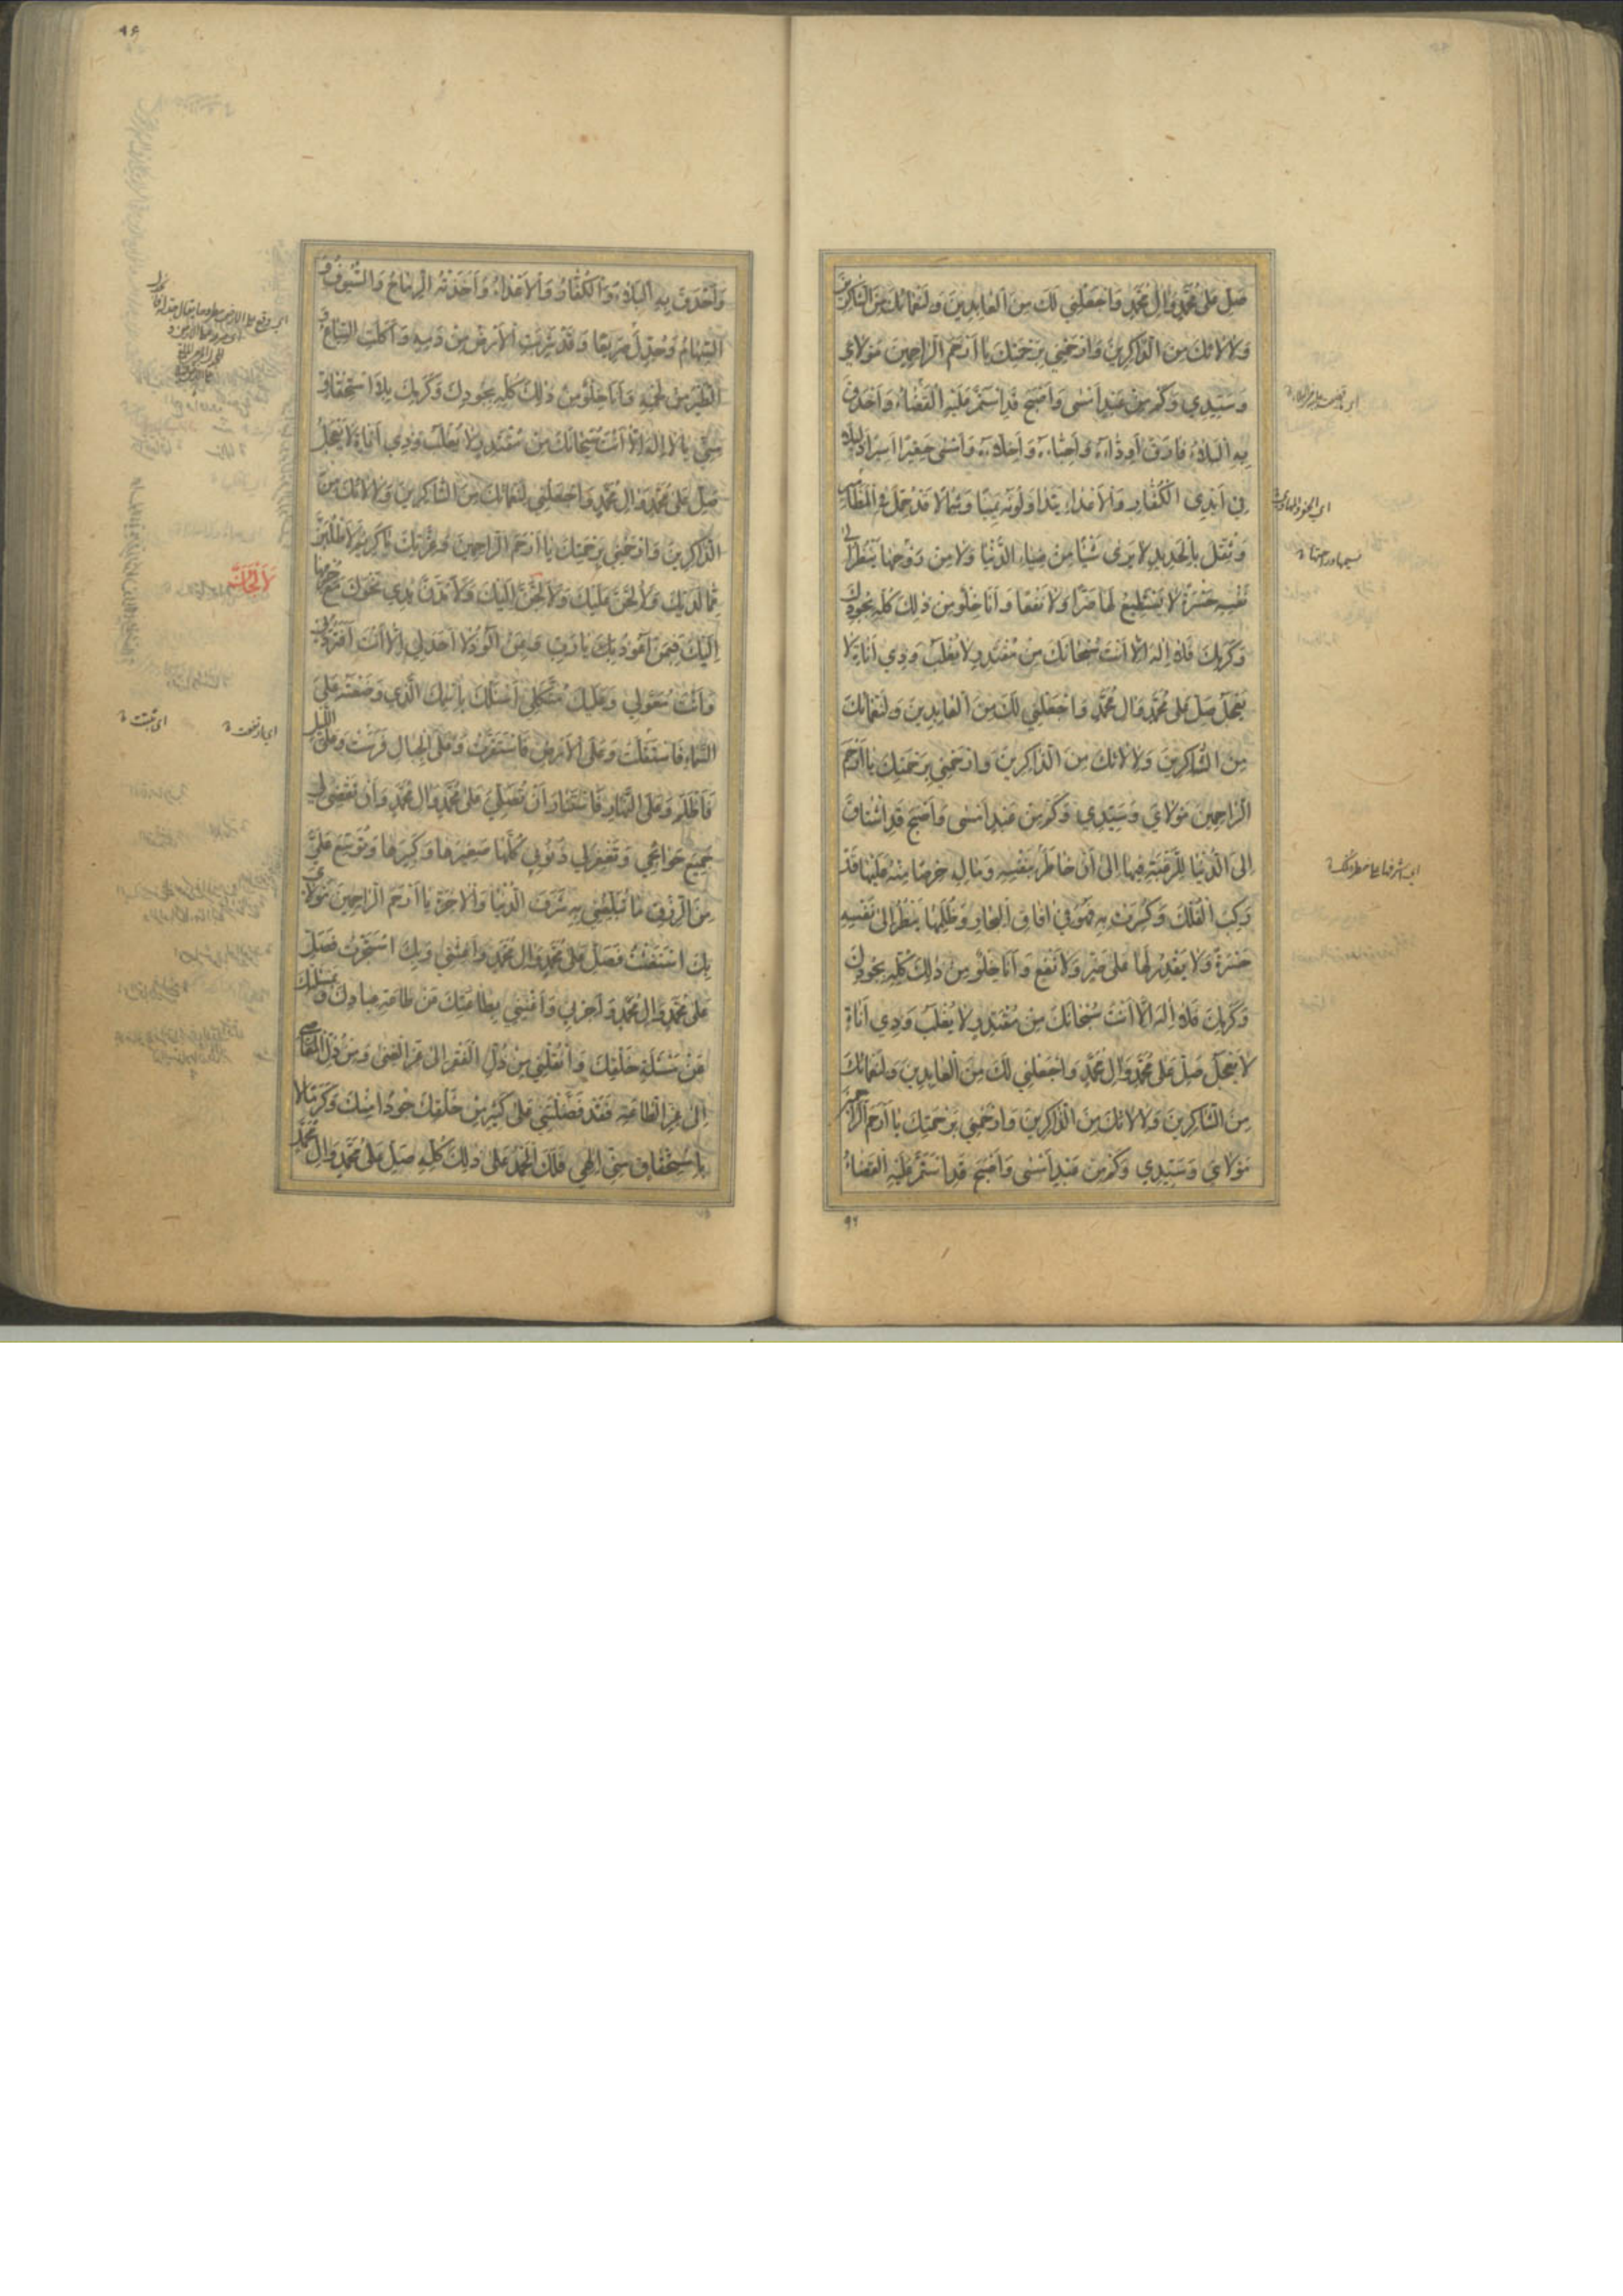 صَلِّ عَلىٰ مُحَمَّدٍ وَاٰلِ مُحَمَّدٍ وَاجْعَلْنِي لَكَ مِنَ الْعَابِدِينَ وَلِنَعْمَائِكَ مِنَ الشَّاكِرِينَ
وَلِاٰلَائِكَ مِنَ الذَّاكِرِينَ وَارْحَمْنِي بِرَحْمَتِكَ يَا اَرْحَمَ الرَّاحِمِينَ مَوْلَايَ
وَسَيِّدِي وَكَمْ مِنْ عَبْدٍ اَمْسىٰ وَاَصْبَحَ قَدِ اسْتَمَرَّ عَلَيْهِ الْقَضَاءُ وَاَحْدَقَ
بِهِ الْبَلَاءُ فَارَقَ اَوِدَّاءَهُ وَاَحِبَّاءَهُ وَاَخِلَّاءَهُ وَاَمْسىٰ حَقِيرًا اَسِيرًا ذَلِيلًا
فِي اَيْدِي الْكُفَّارِ وَالْاَعْدَاءِ يَتَدَاوَلُونَهُ يَمِينًا وَشِمَالًا قَدْ حُمِلَ فِي الْمَطَامِيرِ
وَثُقِّلَ بِالْحَدِيدِ لَا يَرىٰ شَيْئًا مِنْ ضِيَاءِ الدُّنْيَا وَلَا مِنْ رَوْحِهَا يَنْظُرُ اِلىٰ
نَفْسِهِ حَسْرَةً لَا يَسْتَطِيعُ لَهَا ضَرًّا وَلَا نَفْعًا وَاَنَا خِلْوٌ مِنْ ذٰلِكَ كُلِّهِ بِجُودِكَ
وَكَرَمِكَ فَلَا اِلٰهَ اِلَّا اَنْتَ سُبْحَانَكَ مِنْ مُقْتَدِرٍ لَا يُغْلَبُ وَذِي اَنَاةٍ لَا
يَعْجَلُ صَلِّ عَلىٰ مُحَمَّدٍ وَاٰلِ مُحَمَّدٍ وَاجْعَلْنِي لَكَ مِنَ الْعَابِدِينَ وَلِنَعْمَائِكَ
مِنَ الشَّاكِرِينَ وَلِاٰلَائِكَ مِنَ الذَّاكِرِينَ وَارْحَمْنِي بِرَحْمَتِكَ يَا اَرْحَمَ
الرَّاحِمِينَ مَوْلَايَ وَسَيِّدِي وَكَمْ مِنْ عَبْدٍ اَمْسىٰ وَاَصْبَحَ قَدِ اشْتَاقَ
اِلَى الدُّنْيَا لِلرَّغْبَةِ فِيهَا اِلىٰ اَنْ خَاطَرَ بِنَفْسِهِ وَمَالِهِ حِرْصًا مِنْهُ عَلَيْهَا قَدْ
رَكِبَ الْفُلْكَ وَكُسِرَتْ بِهِ فَهُوَ فِي اٰفَاقِ الْبِحَارِ وَظُلَمِهَا يَنْظُرُ اِلىٰ نَفْسِهِ
حَسْرَةً وَلَا يَقْدِرُ لَهَا عَلىٰ ضَرٍّ وَلَا نَفْعٍ وَاَنَا خِلْوٌ مِنْ ذٰلِكَ كُلِّهِ بِجُودِكَ
وَكَرَمِكَ فَلَا اِلٰهَ اِلَّا اَنْتَ سُبْحَانَكَ مِنْ مُقْتَدِرٍ لَا يُغْلَبُ وَذِي اَنَاةٍ
لَا يَعْجَلُ صَلِّ عَلىٰ مُحَمَّدٍ وَاٰلِ مُحَمَّدٍ وَاجْعَلْنِي لَكَ مِنَ الْعَابِدِينَ وَلِنَعْمَائِكَ
مِنَ الشَّاكِرِينَ وَلِاٰلَائِكَ مِنَ الذَّاكِرِينَ وَارْحَمْنِي بِرَحْمَتِكَ يَا اَرْحَمَ الرَّاحِمِينَ
مَوْلَايَ وَسَيِّدِي وَكَمْ مِنْ عَبْدٍ اَمْسىٰ وَاَصْبَحَ قَدِ اسْتَمَرَّ عَلَيْهِ الْقَضَاءُ
وَاَحْدَقَ بِهِ الْبَلَاءُ وَالْكُفَّارُ وَالْاَعْدَاءُ وَاَخَذَتْهُ الرِّمَاحُ وَالسُّيُوفُ وَ
السِّهَامُ وَجُدِّلَ صَرِيعًا وَقَدْ شَرِبَتِ الْاَرْضُ مِنْ دَمِهِ وَاَكَلَتِ السِّبَاعُ وَ
الطَّيْرُ مِنْ لَحْمِهِ وَاَنَا خِلْوٌ مِنْ ذٰلِكَ كُلِّهِ بِجُودِكَ وَكَرَمِكَ لَا بِاسْتِحْقَاقٍ
مِنِّي يَا لَا اِلٰهَ اِلَّا اَنْتَ سُبْحَانَكَ مِنْ مُقْتَدِرٍ لَا يُغْلَبُ وَذِي اَنَاةٍ لَا يَعْجَلُ
صَلِّ عَلىٰ مُحَمَّدٍ وَاٰلِ مُحَمَّدٍ وَاجْعَلْنِي لِنَعْمَائِكَ مِنَ الشَّاكِرِينَ وَلِاٰلَائِكَ مِنَ
الذَّاكِرِينَ وَارْحَمْنِي بِرَحْمَتِكَ يَا اَرْحَمَ الرَّاحِمِينَ وَعِزَّتِكَ يَا كَرِيمُ لَاَطْلُبَنَّ
مِمَّا لَدَيْكَ وَلَاُلِحَّنَّ عَلَيْكَ وَلَاُلِحَّنَّ اِلَيْكَ وَلَاَمُدَّنَّ يَدِي نَحْوَكَ مَعَ جُرْمِهَا
اِلَيْكَ فَبِمَنْ اَعُوذُ بِكَ يَا رَبِّ وَبِمَنْ اَلُوذُ لَا اَحَدَ لِي اِلَّا اَنْتَ اَفَتَرُدُّنِي
وَاَنْتَ مُعَوَّلِي وَعَلَيْكَ مُتَّكَلِي اَسْئَلُكَ بِاسْمِكَ الَّذِي وَضَعْتَهُ عَلىَ
السَّمَاءِ فَاسْتَقَلَّتْ وَعَلَى الْاَرْضِ فَاسْتَقَرَّتْ وَعَلَى الْجِبَالِ فَرَسَتْ وَعَلَى اللَّيْلِ
فَاَظْلَمَ وَعَلَى النَّهَارِ فَاسْتَنَارَ اَنْ تُصَلِّيَ عَلىٰ مُحَمَّدٍ وَاٰلِ مُحَمَّدٍ وَاَنْ تَقْضِيَ لِي
جَمِيعَ حَوَائِجِي وَتَغْفِرَ لِي ذُنُوبِي كُلَّهَا صَغِيرَهَا وَكَبِيرَهَا وَتُوَسِّعَ عَلَيَّ
مِنَ الرِّزْقِ مَا تُبَلِّغُنِي بِهِ شَرَفَ الدُّنْيَا وَالْاٰخِرَةِ يَا اَرْحَمَ الرَّاحِمِينَ مَوْلَايَ
بِكَ اسْتَغَثْتُ فَصَلِّ عَلىٰ مُحَمَّدٍ وَاٰلِ مُحَمَّدٍ وَاَغِثْنِي وَبِكَ اسْتَجَرْتُ فَصَلِّ
عَلىٰ مُحَمَّدٍ وَاٰلِ مُحَمَّدٍ وَاَجِرْنِي وَاَغْنِنِي بِطَاعَتِكَ عَنْ طَاعَةِ عِبَادِكَ وَبِمَسْئَلَتِكَ
عَنْ مَسْئَلَةِ خَلْقِكَ وَانْقُلْنِي مِنْ ذُلِّ الْفَقْرِ اِلىٰ عِزِّ الْغِنىٰ وَمِنْ ذُلِّ الْمَعَاصِي
اِلىٰ عِزِّ الطَّاعَةِ فَقَدْ فَضَّلْتَنِي عَلىٰ كَثِيرٍ مِنْ خَلْقِكَ جُودًا مِنْكَ وَكَرَمًا لَا
بِاسْتِحْقَاقٍ مِنِّي اِلٰهِي فَلَكَ الْحَمْدُ عَلىٰ ذٰلِكَ كُلِّهِ صَلِّ عَلىٰ مُحَمَّدٍ وَاٰلِ مُحَمَّدٍ